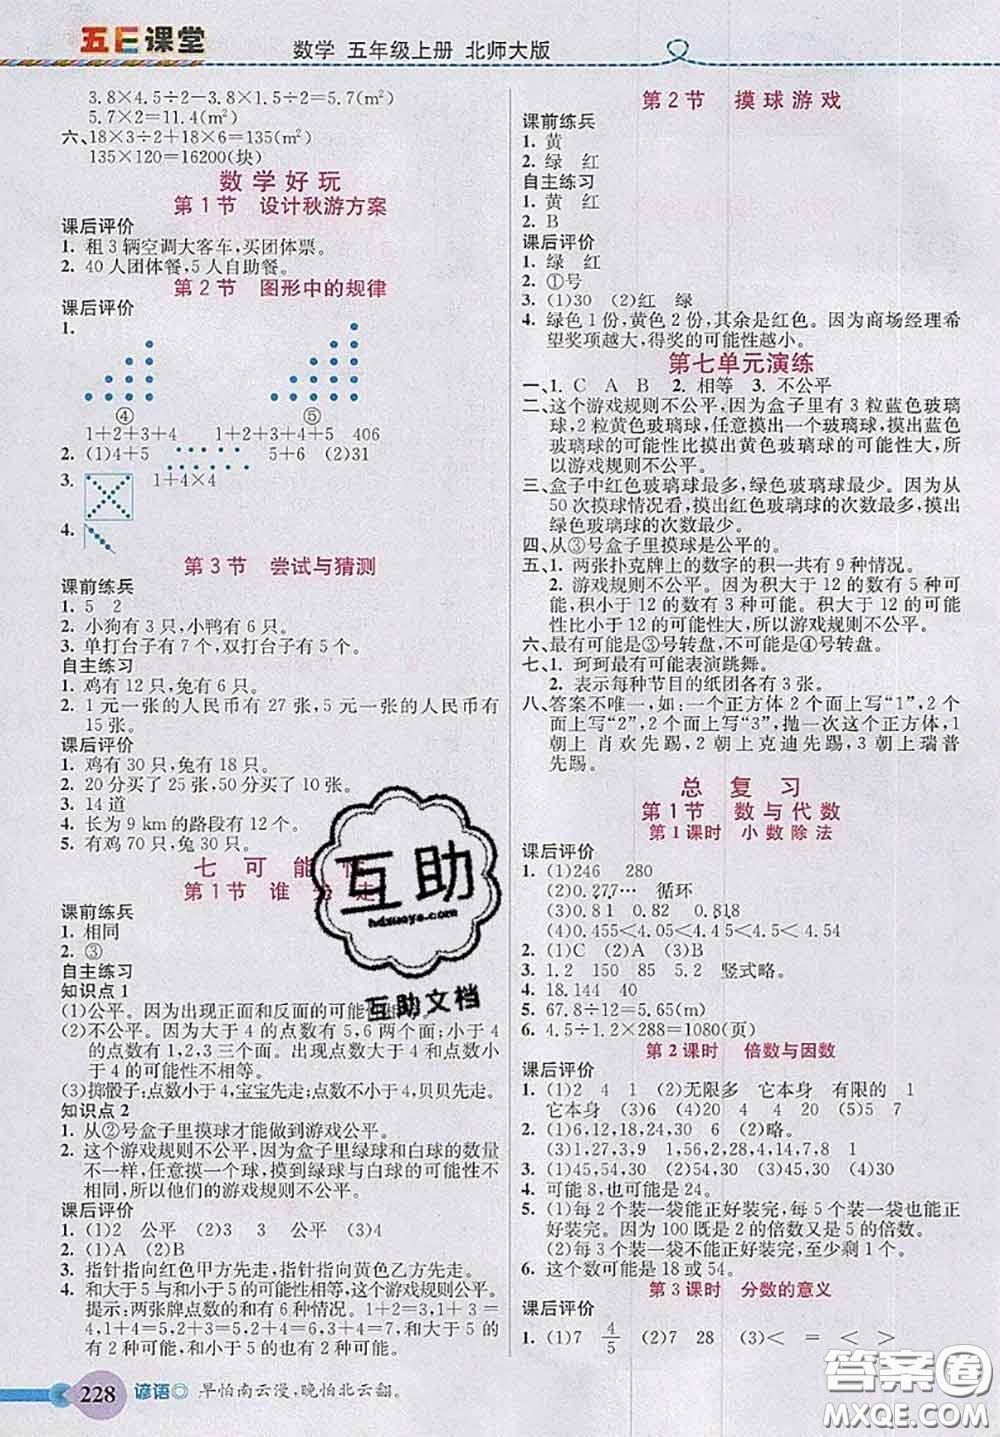 五E课堂
数学 五年级上册 北师大版
3.8×4.5÷2-3.8×1.5÷2=5.7(m²)
5.7×2=11.4(m²)
六、18×3÷2+18×6=135(m²)
135×120=16200(块)
数学好玩
第1节 设计秋游方案
课后评价
1. 租3辆空调大客车,买团体票。
2. 40人团体餐,5人自助餐。
第2节 图形中的规律
课后评价
1.
④ ⑤
1+2+3+4 1+2+3+4+5 406
2. (1)4+5 5+6 (2)31
3. 1+4×4
4.
第3节 尝试与猜测
课前练兵
1. 5 2
2. 小狗有3只,小鸭有6只。
3. 单打台子有7个,双打台子有5个。
自主练习
1. 鸡有12只,兔有6只。
2. 1元一张的人民币有27张,5元一张的人民币有
15张。
课后评价
1. 鸡有30只,兔有18只。
2. 20分买了25张,50分买了10张。
3. 14道
4. 长为9 km的路段有12个。
5. 有鸡70只,兔30只。
七 可能性
第1节 谁先走
课前练兵
1. 相同
2. ③
自主练习
知识点1
(1)公平。因为出现正面和反面的可能性相等。
(2)不公平。因为大于4的点数有5,6两个面;小于4
的点数有1,2,3三个面。出现点数大于4和小于
4的可能性不相等。
(3)掷骰子;点数小于4,宝宝先走;点数大于4,贝贝先走。
知识点2
1. 从②号盒子里摸球才能做到游戏公平。
2. 这个游戏规则不公平,因为盒子里绿球和白球的数量
不一样,任意摸一个球,摸到绿球与白球的可能性不
相同,所以他们的游戏规则不公平。
课后评价
1. (1)2 公平 (2)3 3 公平 (3)4
2. (1)A (2)B
3. 指针指向红色甲方先走,指针指向黄色乙方先走。
4. 和大于5与和小于5的可能性相等,这个游戏规则公平。
提示:两张牌点数的和有6种情况。1+2=3,1+3=
4,1+4=5,2+3=5,2+4=6,3+4=7,和大于5的
有2种可能,和小于5的也有2种可能。
228 谚语◎ 早怕南云漫,晚怕北云翻。
第2节 摸球游戏
课前练兵
1. 黄
2. 绿 红
自主练习
1. 黄 红
2. B
课后评价
1. 绿 红
2. ①号
3. (1)30 (2)红 绿
4. 绿色1份,黄色2份,其余是红色。因为商场经理希
望奖项越大,得奖的可能性越小。
第七单元演练
一、1. C A B 2. 相等 3. 不公平
二、这个游戏规则不公平,因为盒子里有3粒蓝色玻璃
球,2粒黄色玻璃球,任意摸出一个玻璃球,摸出蓝
色玻璃球的可能性比摸出黄色玻璃球的可能性大,所
以游戏规则不公平。
三、盒子中红色玻璃球最多,绿色玻璃球最少。因为从
50次摸球情况看,摸出红色玻璃球的次数最多,摸出
绿色玻璃球的次数最少。
四、从③号盒子里摸球是公平的。
五、1. 两张扑克牌上的数字的积一共有9种情况。
2. 游戏规则不公平。因为积大于12的数有5种可
能,积小于12的数有3种可能。积大于12的可能
性比小于12的可能性大,所以游戏规则不公平。
六、最有可能是③号转盘,不可能是④号转盘。
七、1. 珂珂最有可能表演跳舞。
2. 表示每种节目的纸团各有3张。
八、答案不唯一,如:一个正方体2个面上写“1”,2个
面上写“2”,2个面上写“3”,抛一次这个正方体,1
朝上 肖欢先踢,2朝上克迪先踢,3朝上瑞普
先踢。
总复习
第1节 数与代数
第1课时 小数除法
课后评价
1. (1)246 280
(2)0.27,7… 循环
(3)0.81 0.82 0.818
(4)0.455<4.05<4.5<4.45<4.54
2. (1)C (2)D (3)B
3. 1.2 150 85 5.2 竖式略。
4. 18.144 40
5. 67.8÷12=5.65(m)
6. 4.5÷1.2×288=1080(页)
第2课时 倍数与因数
课后评价
1. (1)2 4 1 (2)无限多 它本身 有限的 1
它本身 (3)6 20 4 4 20
2. (1)6,12,18,24,30 6 (2)略。
(3)1,3,9,29 1,56,2,28,4,14,7,8
3. (1)45,54,30 (2)45,30 (3)54,30 (4)30
4. 可能8,也可能是24。
5. (1)每2个装一袋能正好装完,每5个装一袋也能正
好装完。因为100既是2的倍数又是5的倍数。
(2)每3个装一袋不能正好装完,至少剩1个。
6. 这个数可能是18或54。
第3课时 分数的意义
课后评价
1. (1)7 4/5 (2)7 28 (3)< = < >
互助
hdzuoye.com
互助文档
答案圈
MXQE.COM